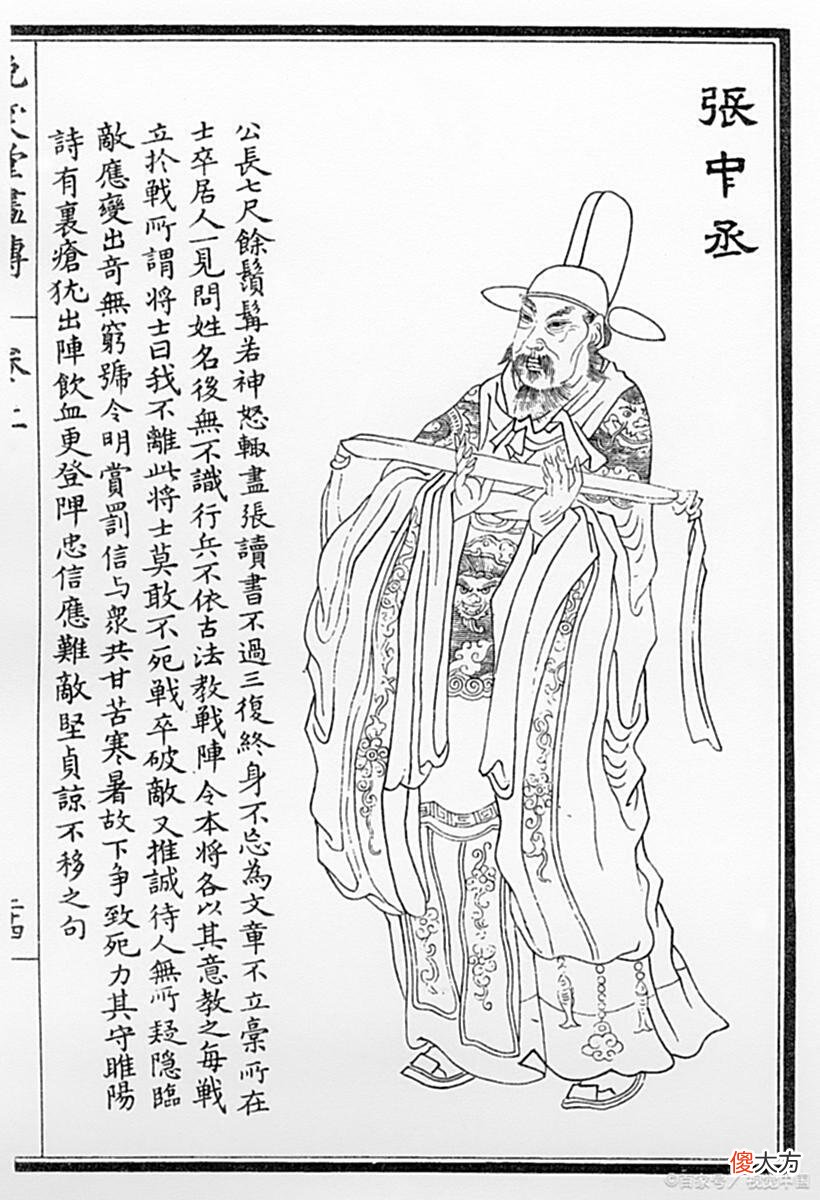 張中丞
公長七尺餘鬚髯若神怒輙盡張讀書不過三復終身不忘為文章不立稾所在
士卒居人一見問姓名後無不識行兵不依古法教戰陣令本將各以其意教之每戰
立於戰所謂將士曰我不離此將士莫敢不死戰卒破敵又推誠待人無所疑隐臨
敵應變出奇無窮號令明賞罰信与衆共甘苦寒暑故下争致死力其守睢陽
詩有裏瘡犹出陣飲血更登陴忠信應難敵堅貞諒不移之句
堂畫傳
傻大方
©百家号/视觉中国